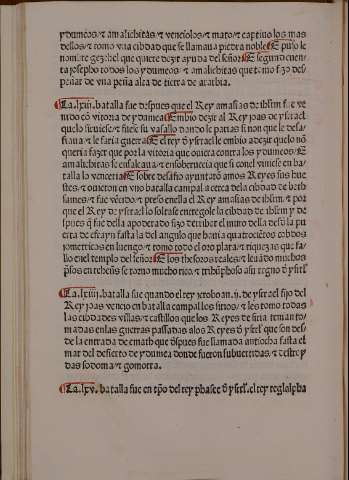 ydumeos ⁊ amalichitas ⁊ venciolos ⁊ mato ⁊ captiuo los mas
dellos ⁊ tomo vna cibdad que se llamaua piedra noble E puso le
nombre gezihel que quiere dezir ayuda del señor E segund cuenta
josepho todos los ydumeos ⁊ amalichitas que tomo fizo des
peñar de vna peña alta de tierra de arabia.
La .lxiij. batalla fue despues que el Rey amasias de ihlm fue ve
nido cõ vitoria de ydumea Embio dezir al Rey joas de ysrael
quelo siruiese ⁊ fuese su vasallo dando le parias si non que le desa
fiaua ⁊ le faria guerra E el rey đ ysrael le embio a dezir quelo nõ
queria fazer que por la vitoria que ouiera contra los ydumeos ⁊
amalichitas le ensalçaua ⁊ ensoberuecia que si conel viniese en ba
talla lo venceria E sobre desafio ayuntarõ amos Reyes sus hue
stes ⁊ ouieron en vno batalla campal acerca dela cibdad de beth
sames ⁊ fue vẽcido ⁊ preso enella el Rey amasias de ihlm. ⁊ por
que el Rey de ysrael lo soltase entregole la cibdad de ihlm y de
spues q̃ fue della apoderado fizo derribar el muro della desđ la pu
erta de efrayn fasta la del angulo que bien a quatrociẽtos cobdos
jometricos en luengo ⁊ tomo todo el oro plata ⁊ riquezas que fa
llo enel templo del señor E los thesoros reales ⁊ leuãdo muchos
p̃sos en rehenẽs se torno mucho rico ⁊ triũphoso asu regno đ ysrl
La .lxiiij. batalla fue quando el rey xeroboan .ij. de ysrael fijo del
Rey joas vencio en batalla campal los sirios ⁊ les tomo todas
las cibdades villas ⁊ castillos que los Reyes de siria tenian to
madas enlas guerras passadas alos Reyes đ ysrl que son des
de la entrada de emath que đspues fue llamada antiocha fasta el
mar del desierto de ydumea donde fueron subuertidas ⁊ destruy
das sodoma ⁊ gomorra.
La .lxv. batalla fue en tp̃o del rey phasee đ ysrl. el rey teglalpha